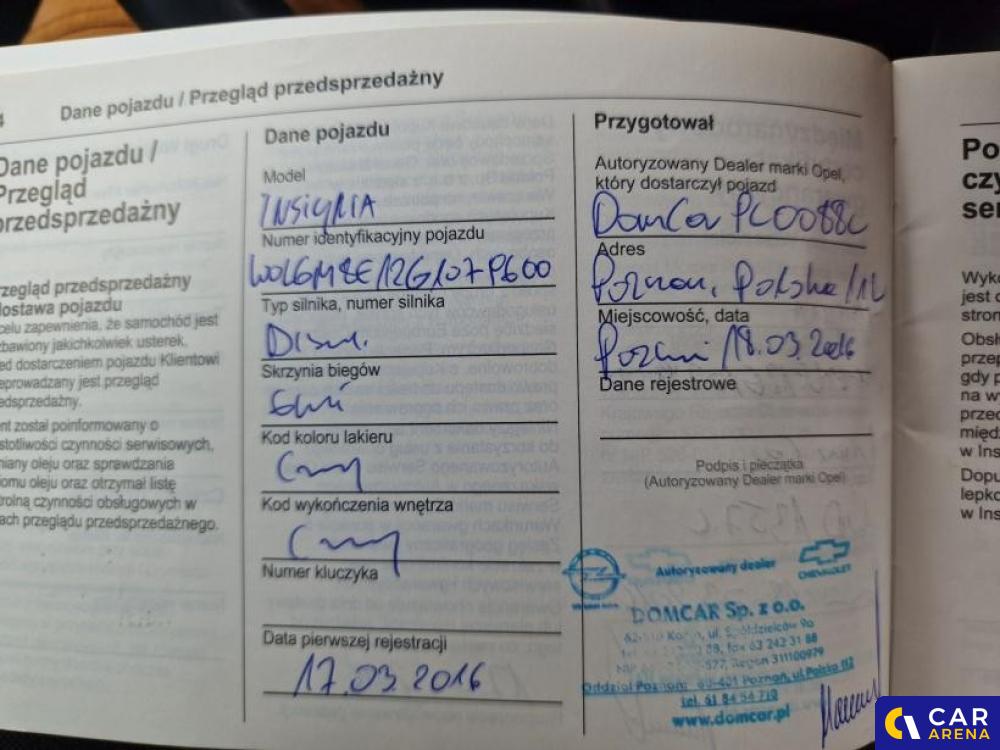 4
Dane pojazdu / Przegląd przedsprzedażny
Dane pojazdu /
Przegląd
przedsprzedażny
rzegląd przedsprzedażny
dostawa pojazdu
celu zapewnienia, że samochód jest
zbawiony jakichkolwiek usterek,
ed dostarczeniem pojazdu Klientowi
eprowadzany jest przegląd
edsprzedażny.
ent został poinformowany o
stotliwości czynności serwisowych,
miany oleju oraz sprawdzania
iomu oleju oraz otrzymał listę
trolną czynności obsługowych w
ach przeglądu przedsprzedażnego.
Dane pojazdu
Model
INSIGNIA
Numer identyfikacyjny pojazdu
Typ silnika, numer silnika
Skrzynia biegów
Kod koloru lakieru
Kod wykończenia wnętrza
Numer kluczyka
Data pierwszej rejestracji
17.03.2016
Przygotował
Autoryzowany Dealer marki Opel,
który dostarczył pojazd
DomCar PL0088C
Adres
Poznań, Polska
Miejscowość, data
Poznań 18.03.2016
Dane rejestrowe
Podpis i pieczątka
(Autoryzowany Dealer marki Opel)
Autoryzowany dealer
CHEVROLET
DOMCAR Sp. z o.o.
62-510 Konin, ul. Spółdzielców 9a
fax 63 242 31 88
577, Regon 311100979
Oddział Poznań: 60-401 Poznań, ul. Polska 112
tel. 61 84 54 710
www.domcar.pl
Po
czy
ser
Wyko
jest o
stron
Obsł
przep
gdy p
na wy
przed
międ
w Ins
Dopu
lepko
w Ins
CAR
ARENA